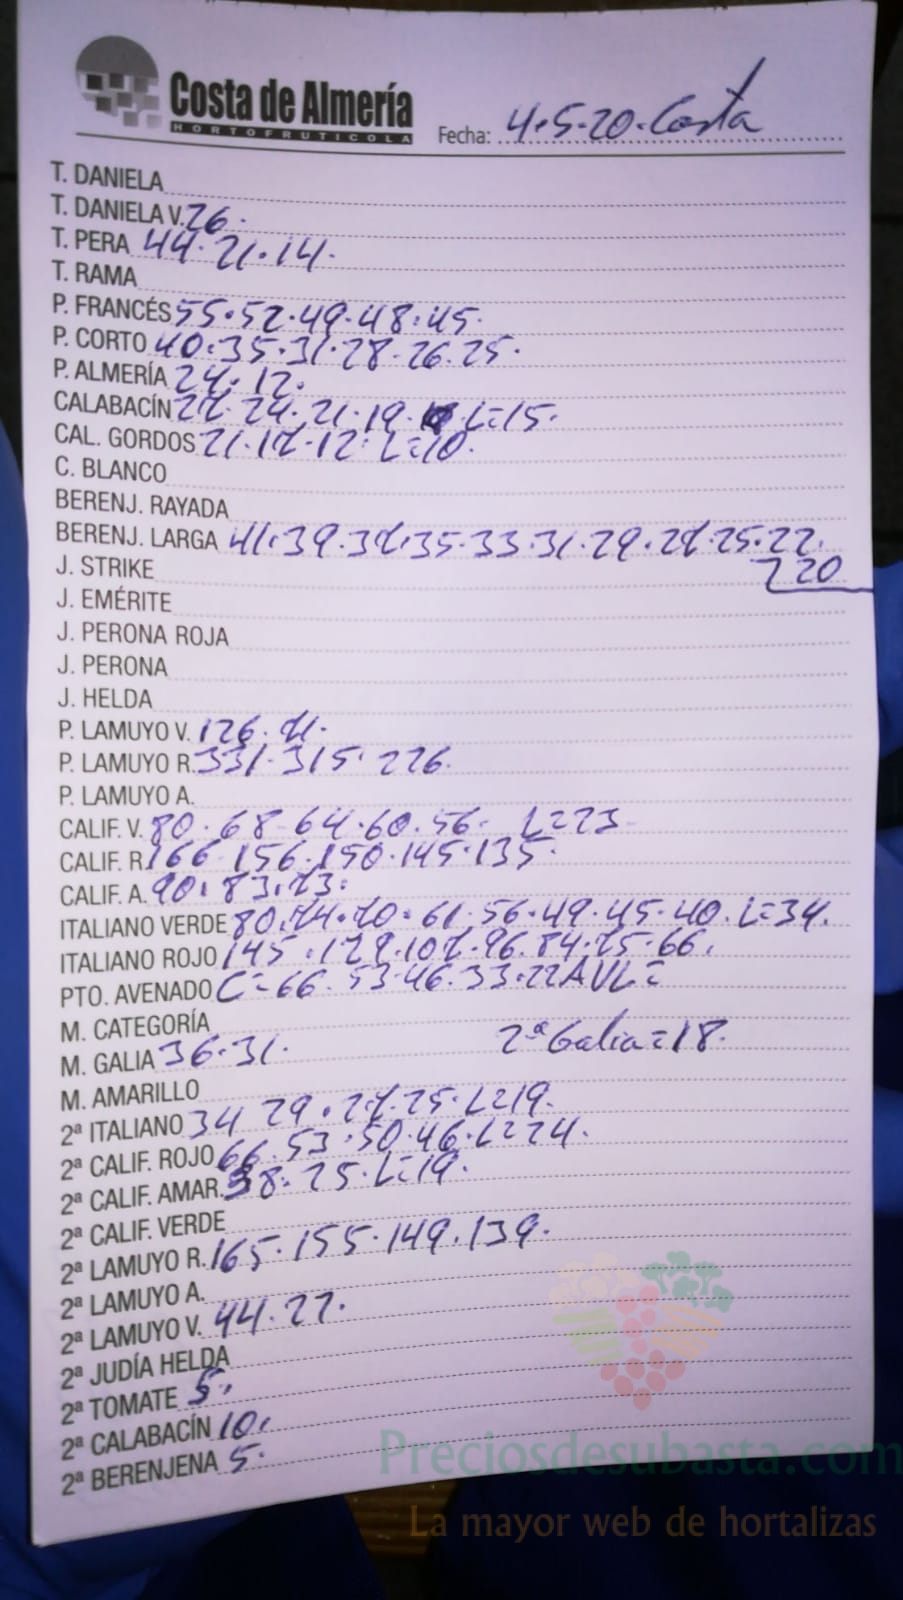 Costa de Almería
HORTOFRUTICOLA
Fecha: 4-5-20-Costa
T. DANIELA
T. DANIELA V. 26.
T. PERA 44.21.14.
T. RAMA
P. FRANCÉS 55.52.49.48.45.
P. CORTO 40.35.31.28.26.25.
P. ALMERÍA 24.12.
CALABACÍN 27.24.21.19. L=15.
CAL. GORDOS 21.17.12. L=10.
C. BLANCO
BERENJ. RAYADA
BERENJ. LARGA 41.39.37.35.33.31.29.27.25.22.
20
J. STRIKE
J. EMÉRITE
J. PERONA ROJA
J. PERONA
J. HELDA
P. LAMUYO V. 126.71.
P. LAMUYO R. 331.315.226.
P. LAMUYO A.
CALIF. V. 80.68-64.60.56- L=23-
CALIF. R 166-156.150.145.135.
CALIF. A. 90.83.73.
ITALIANO VERDE 80.74.70.61.56.49.45.40. L=34.
ITALIANO ROJO 145.129.107.96.84.75.66.
PTO. AVENADO C=66.53-46.33.22 AVL=
M. CATEGORÍA
M. GALIA 36.31. 2ª Galia=18.
M. AMARILLO
2ª ITALIANO 34 29.27.25. L=19.
2ª CALIF. ROJO 66.53.50.46. L=24.
2ª CALIF. AMAR. 38.25. L=19.
2ª CALIF. VERDE
2ª LAMUYO R. 165.155.149.139.
2ª LAMUYO A.
2ª LAMUYO V. 44.22.
2ª JUDÍA HELDA
2ª TOMATE 5.
2ª CALABACÍN 10.
2ª BERENJENA 5.
Preciosdesubasta.com
La mayor web de hortalizas